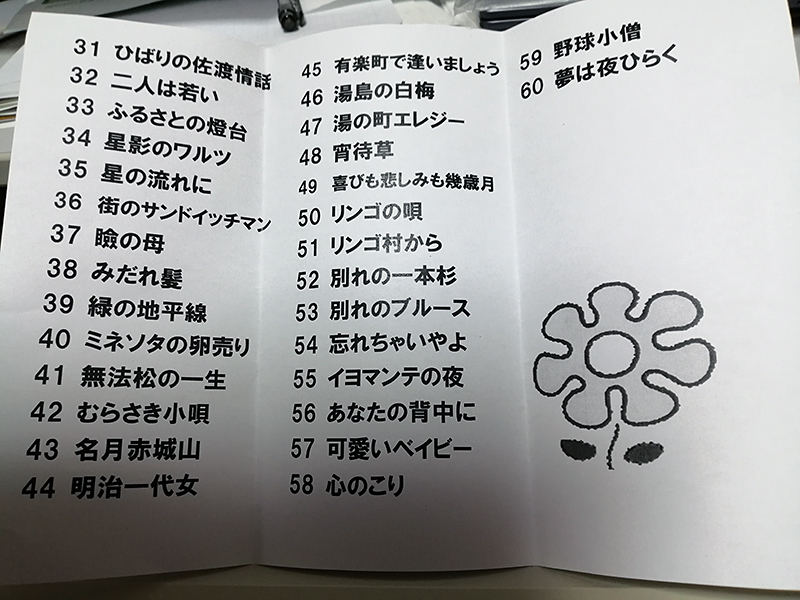 31 ひばりの佐渡情話
32 二人は若い
33 ふるさとの燈台
34 星影のワルツ
35 星の流れに
36 街のサンドイッチマン
37 瞼の母
38 みだれ髪
39 緑の地平線
40 ミネソタの卵売り
41 無法松の一生
42 むらさき小唄
43 名月赤城山
44 明治一代女
45 有楽町で逢いましょう
46 湯島の白梅
47 湯の町エレジー
48 宵待草
49 喜びも悲しみも幾歳月
50 リンゴの唄
51 リンゴ村から
52 別れの一本杉
53 別れのブルース
54 忘れちゃいやよ
55 イヨマンテの夜
56 あなたの背中に
57 可愛いベイビー
58 心のこり
59 野球小僧
60 夢は夜ひらく